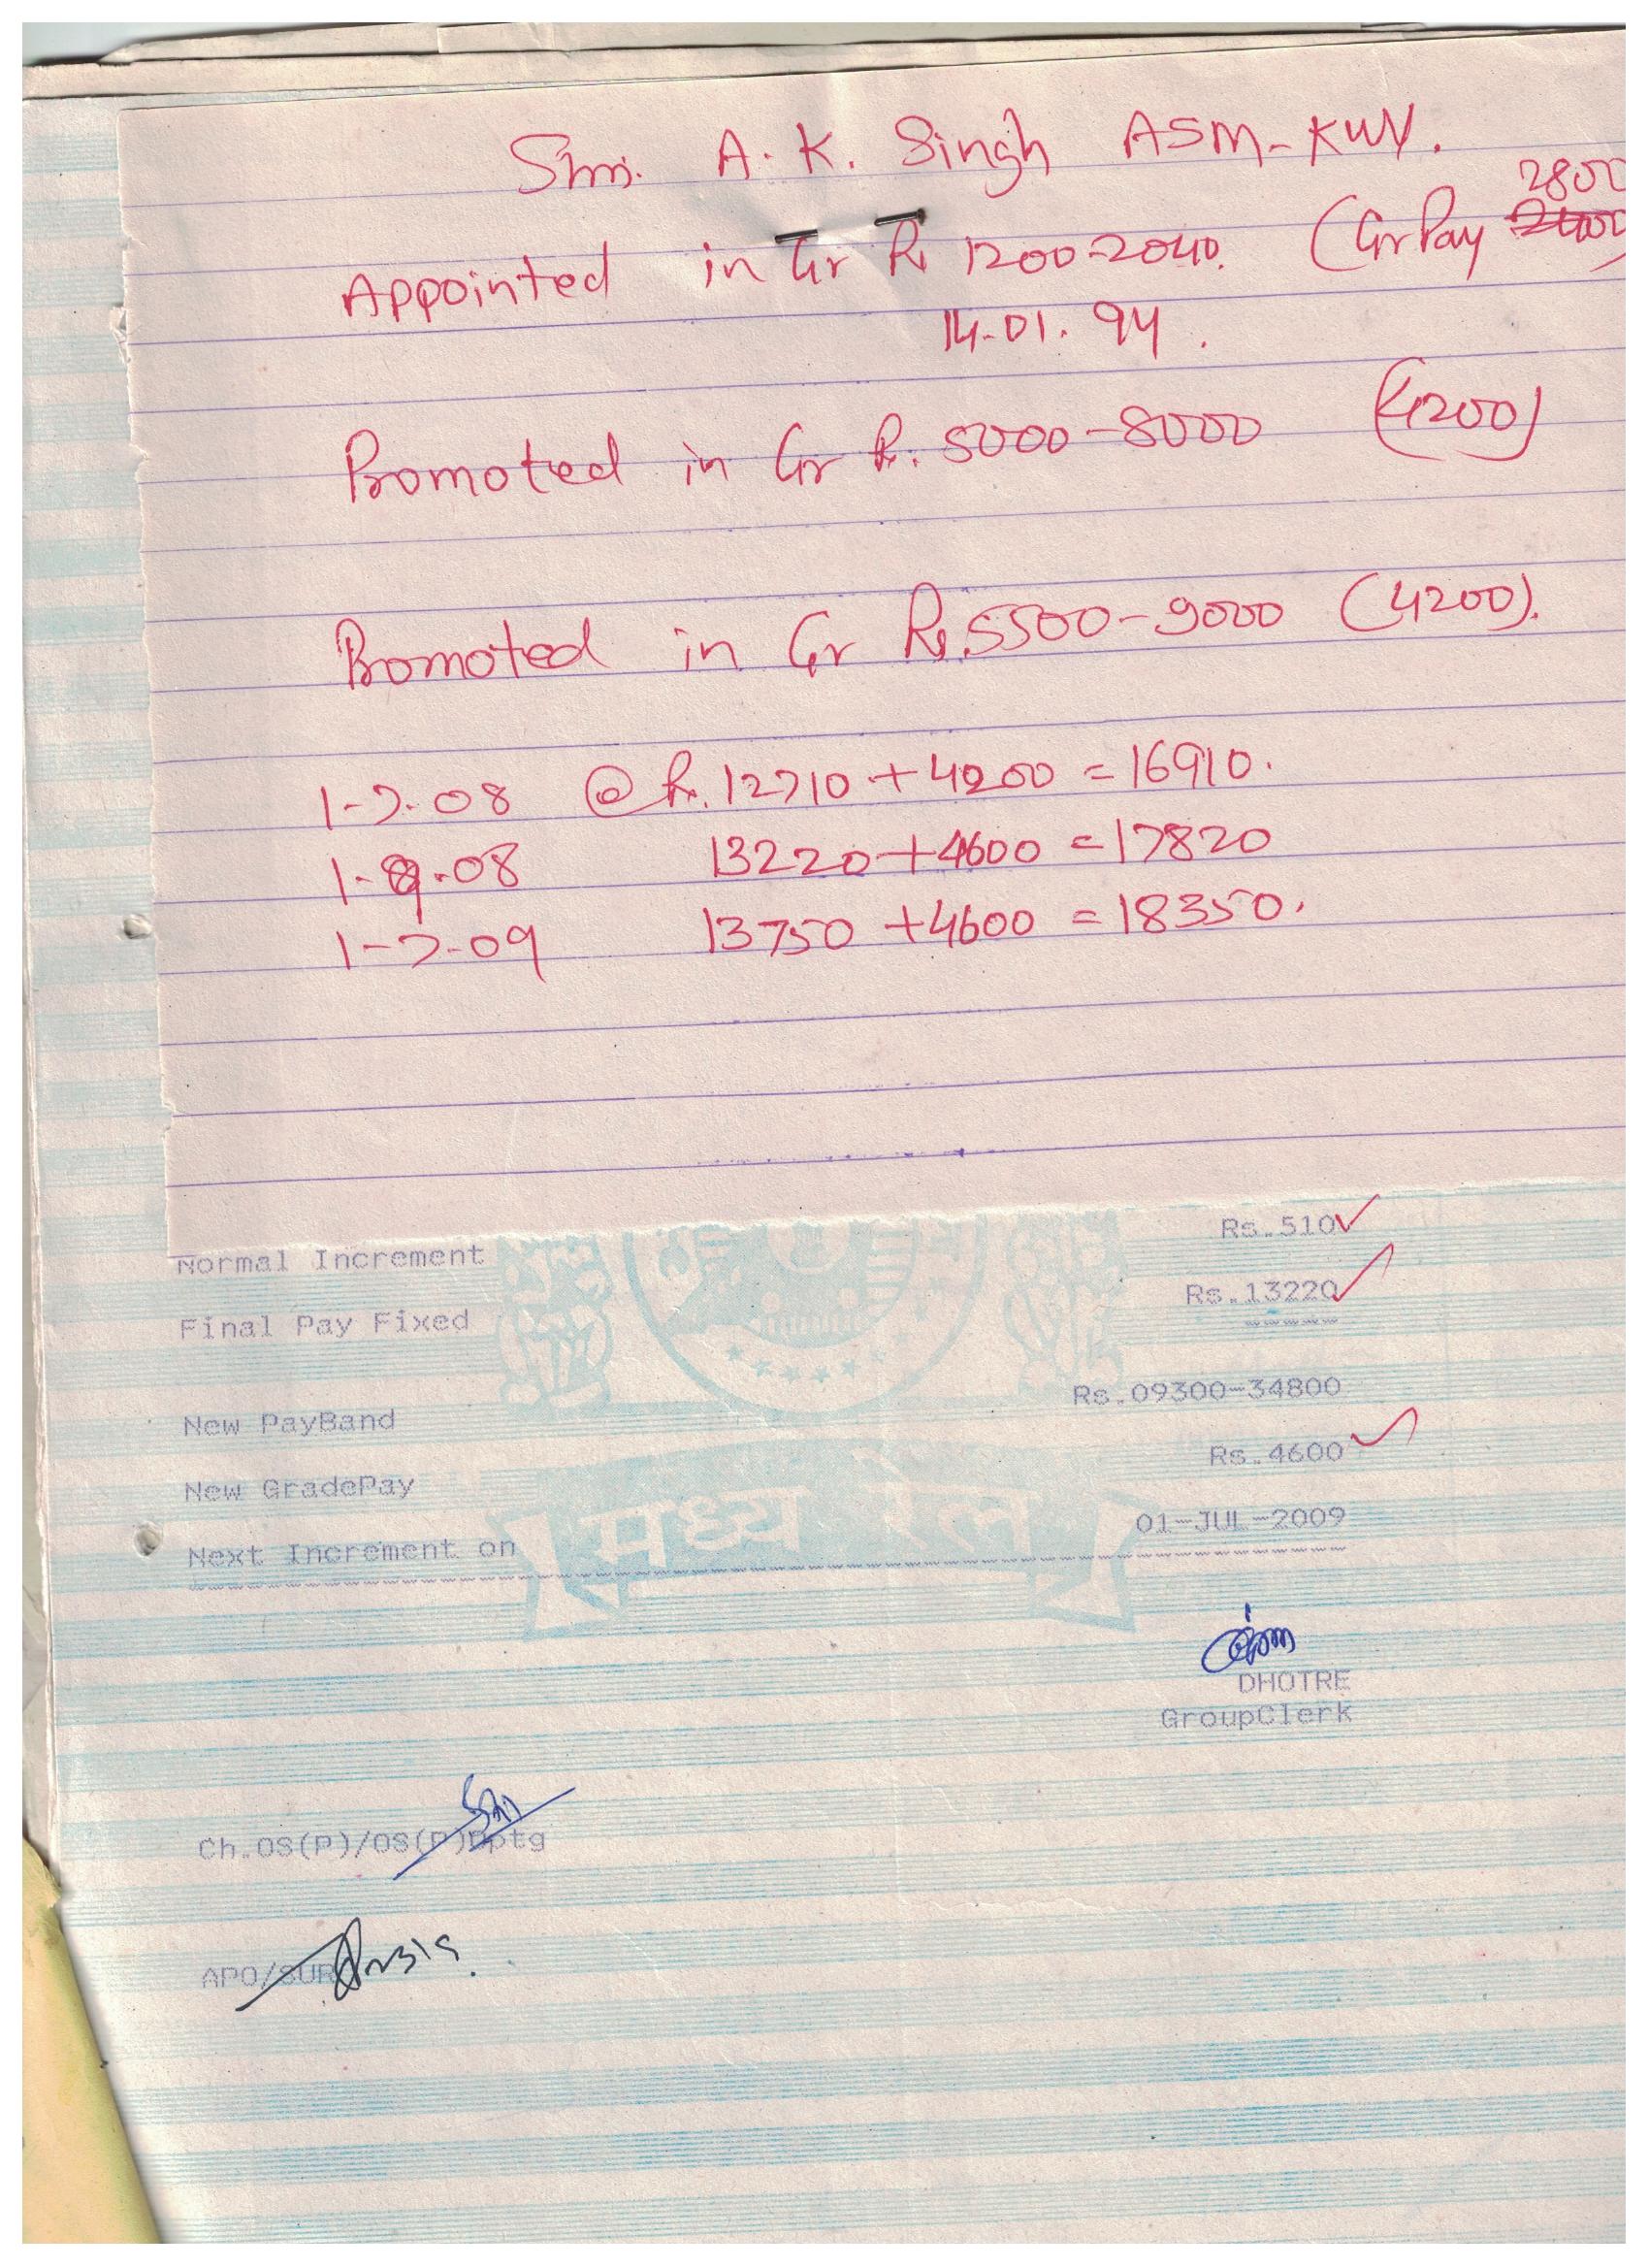 Shri. A. K. Singh ASM-KWV.
2800
Appointed in Gr Rs 1200-2040. (Gr Pay 2400)
14-01.94.
Promoted in Gr Rs. 5000-8000 (4200)
Promoted in Gr Rs.5500-9000 (4200).
1-7-08 @ Rs. 12710+4200 = 16910.
1-9-08 13220+4600 = 17820
1-7-09 13750+4600 = 18350.
Normal Increment Rs.510
Final Pay Fixed Rs.13220
New PayBand Rs.09300-34800
New GradePay Rs.4600
मध्य रेल
Next Increment on 01-JUL-2009
DHOTRE
GroupClerk
Ch.OS(P)/OS(P)Dptg
APO/SUR